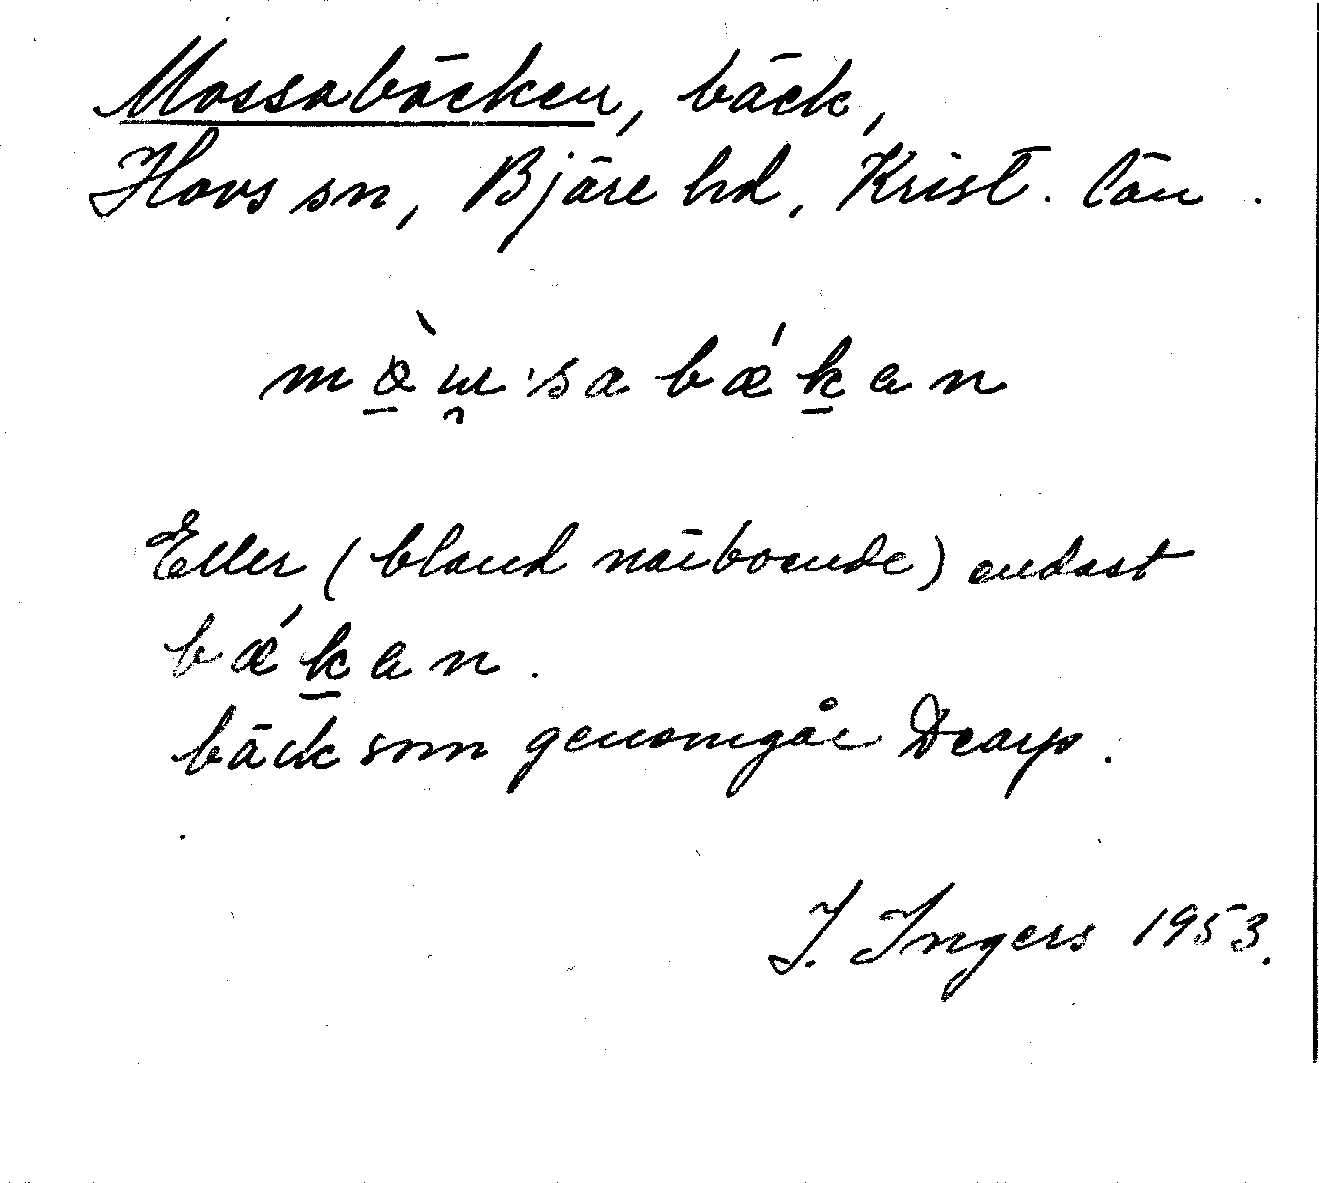 Mossabäcken, bäck,
Hovs sn, Bjäre hd, Krist. län.
bǽk̲an
Eller (bland närboende) endast
bǽk̲an.
bäck som genomgår Dearp.
I. Ingers 1953.